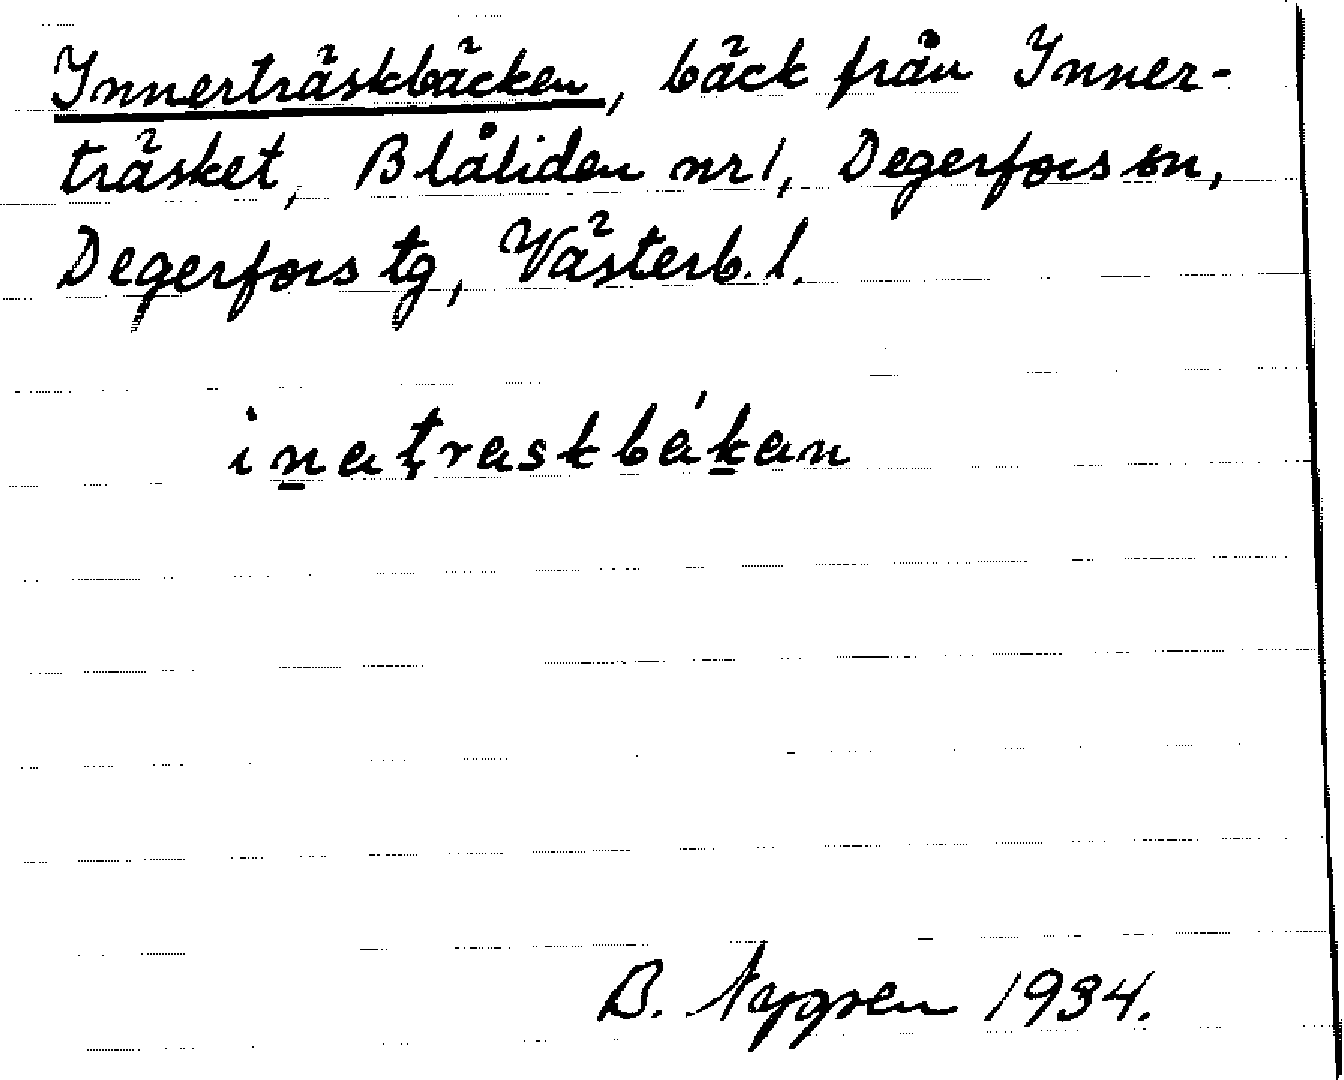 Innerträskbäcken, bäck från Inner-
träsket, Blåliden nr 1, Degerfors sn,
Degerfors tg, Västerb. l.
inatraskbákan
B. Nygren 1934.